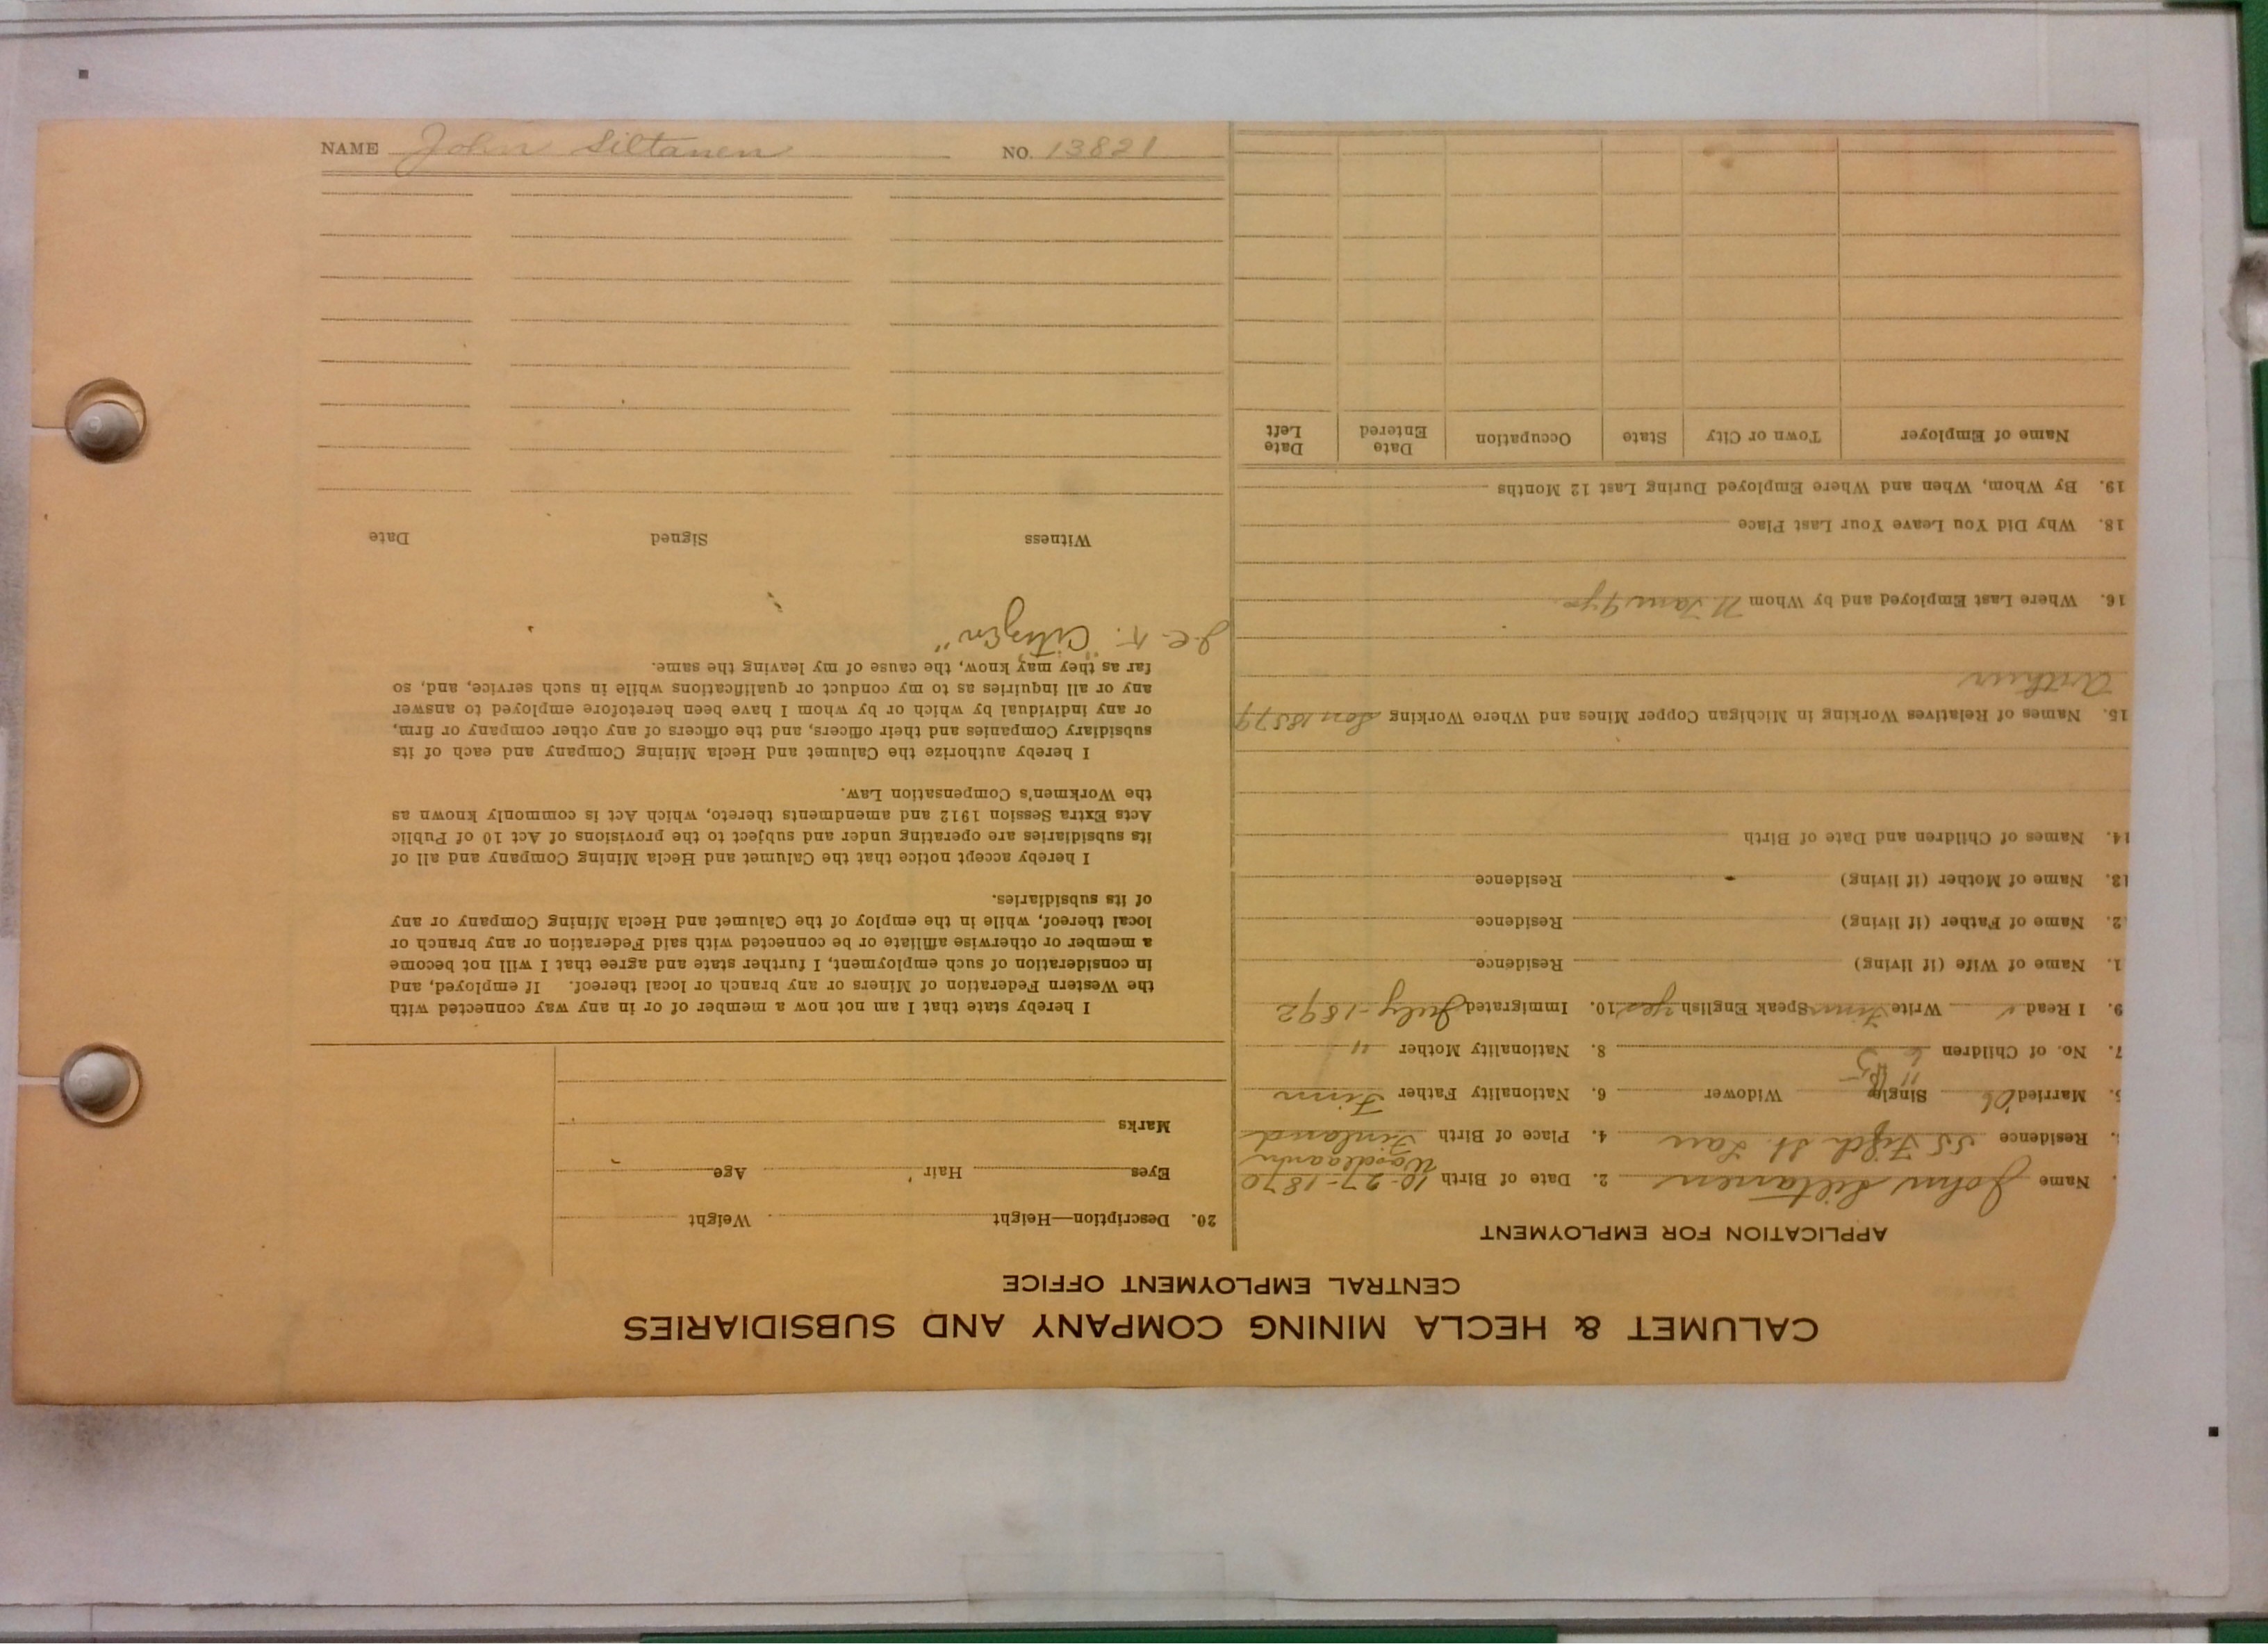 CALUMET & HECLA MINING COMPANY AND SUBSIDIARIES
CENTRAL EMPLOYMENT OFFICE
APPLICATION FOR EMPLOYMENT
Name John Siltanen 2. Date of Birth 10-27-1870
Residence 55 Fifth St. Lau 4. Place of Birth Finland
Married Single Widower 6. Nationality Father Finn
7. No. of Children 8. Nationality Mother "
9. I Read Write Finn Speak English yes 10. Immigrated July-1892
1. Name of Wife (if living) Residence
2. Name of Father (if living) Residence
13. Name of Mother (if living) Residence
14. Names of Children and Date of Birth
15. Names of Relatives Working in Michigan Copper Mines and Where Working Son 18579
Arthur
16. Where Last Employed and by Whom
18. Why Did You Leave Your Last Place
19. By Whom, When and Where Employed During Last 12 Months
Name of Employer Town or City State Occupation Date Entered Date Left
20. Description—Height Weight
Eyes Hair Age
Marks
I hereby state that I am not now a member of or in any way connected with
the Western Federation of Miners or any branch or local thereof. If employed, and
in consideration of such employment, I further state and agree that I will not become
a member or otherwise affiliate or be connected with said Federation or any branch or
local thereof, while in the employ of the Calumet and Hecla Mining Company or any
of its subsidiaries.
I hereby accept notice that the Calumet and Hecla Mining Company and all of
its subsidiaries are operating under and subject to the provisions of Act 10 of Public
Acts Extra Session 1912 and amendments thereto, which Act is commonly known as
the Workmen's Compensation Law.
I hereby authorize the Calumet and Hecla Mining Company and each of its
subsidiary Companies and their officers, and the officers of any other company or firm,
or any individual by which or by whom I have been heretofore employed to answer
any or all inquiries as to my conduct or qualifications while in such service, and, so
far as they may know, the cause of my leaving the same.
"Citizen"
Witness Signed Date
NAME John Siltanen NO. 13821